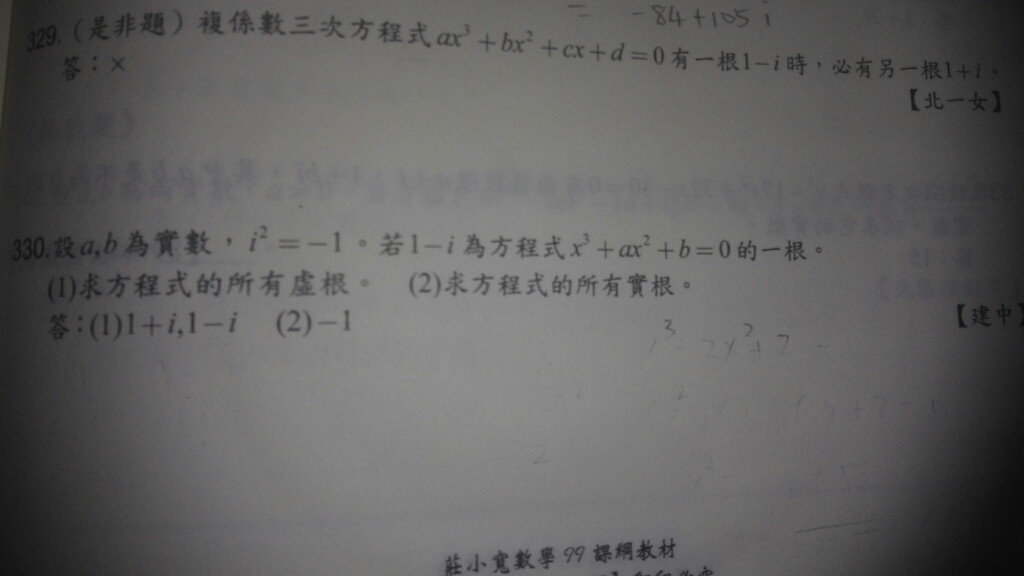 = -84+105i
329.（是非題）複係數三次方程式ax³+bx²+cx+d=0有一根1-i時，必有另一根1+i。
答：×
【北一女】
330.設a,b為實數，i²=-1。若1-i為方程式x³+ax²+b=0的一根。
(1)求方程式的所有虛根。 (2)求方程式的所有實根。
答：(1)1+i,1-i (2)-1
【建中】
莊小寬數學99課綱教材